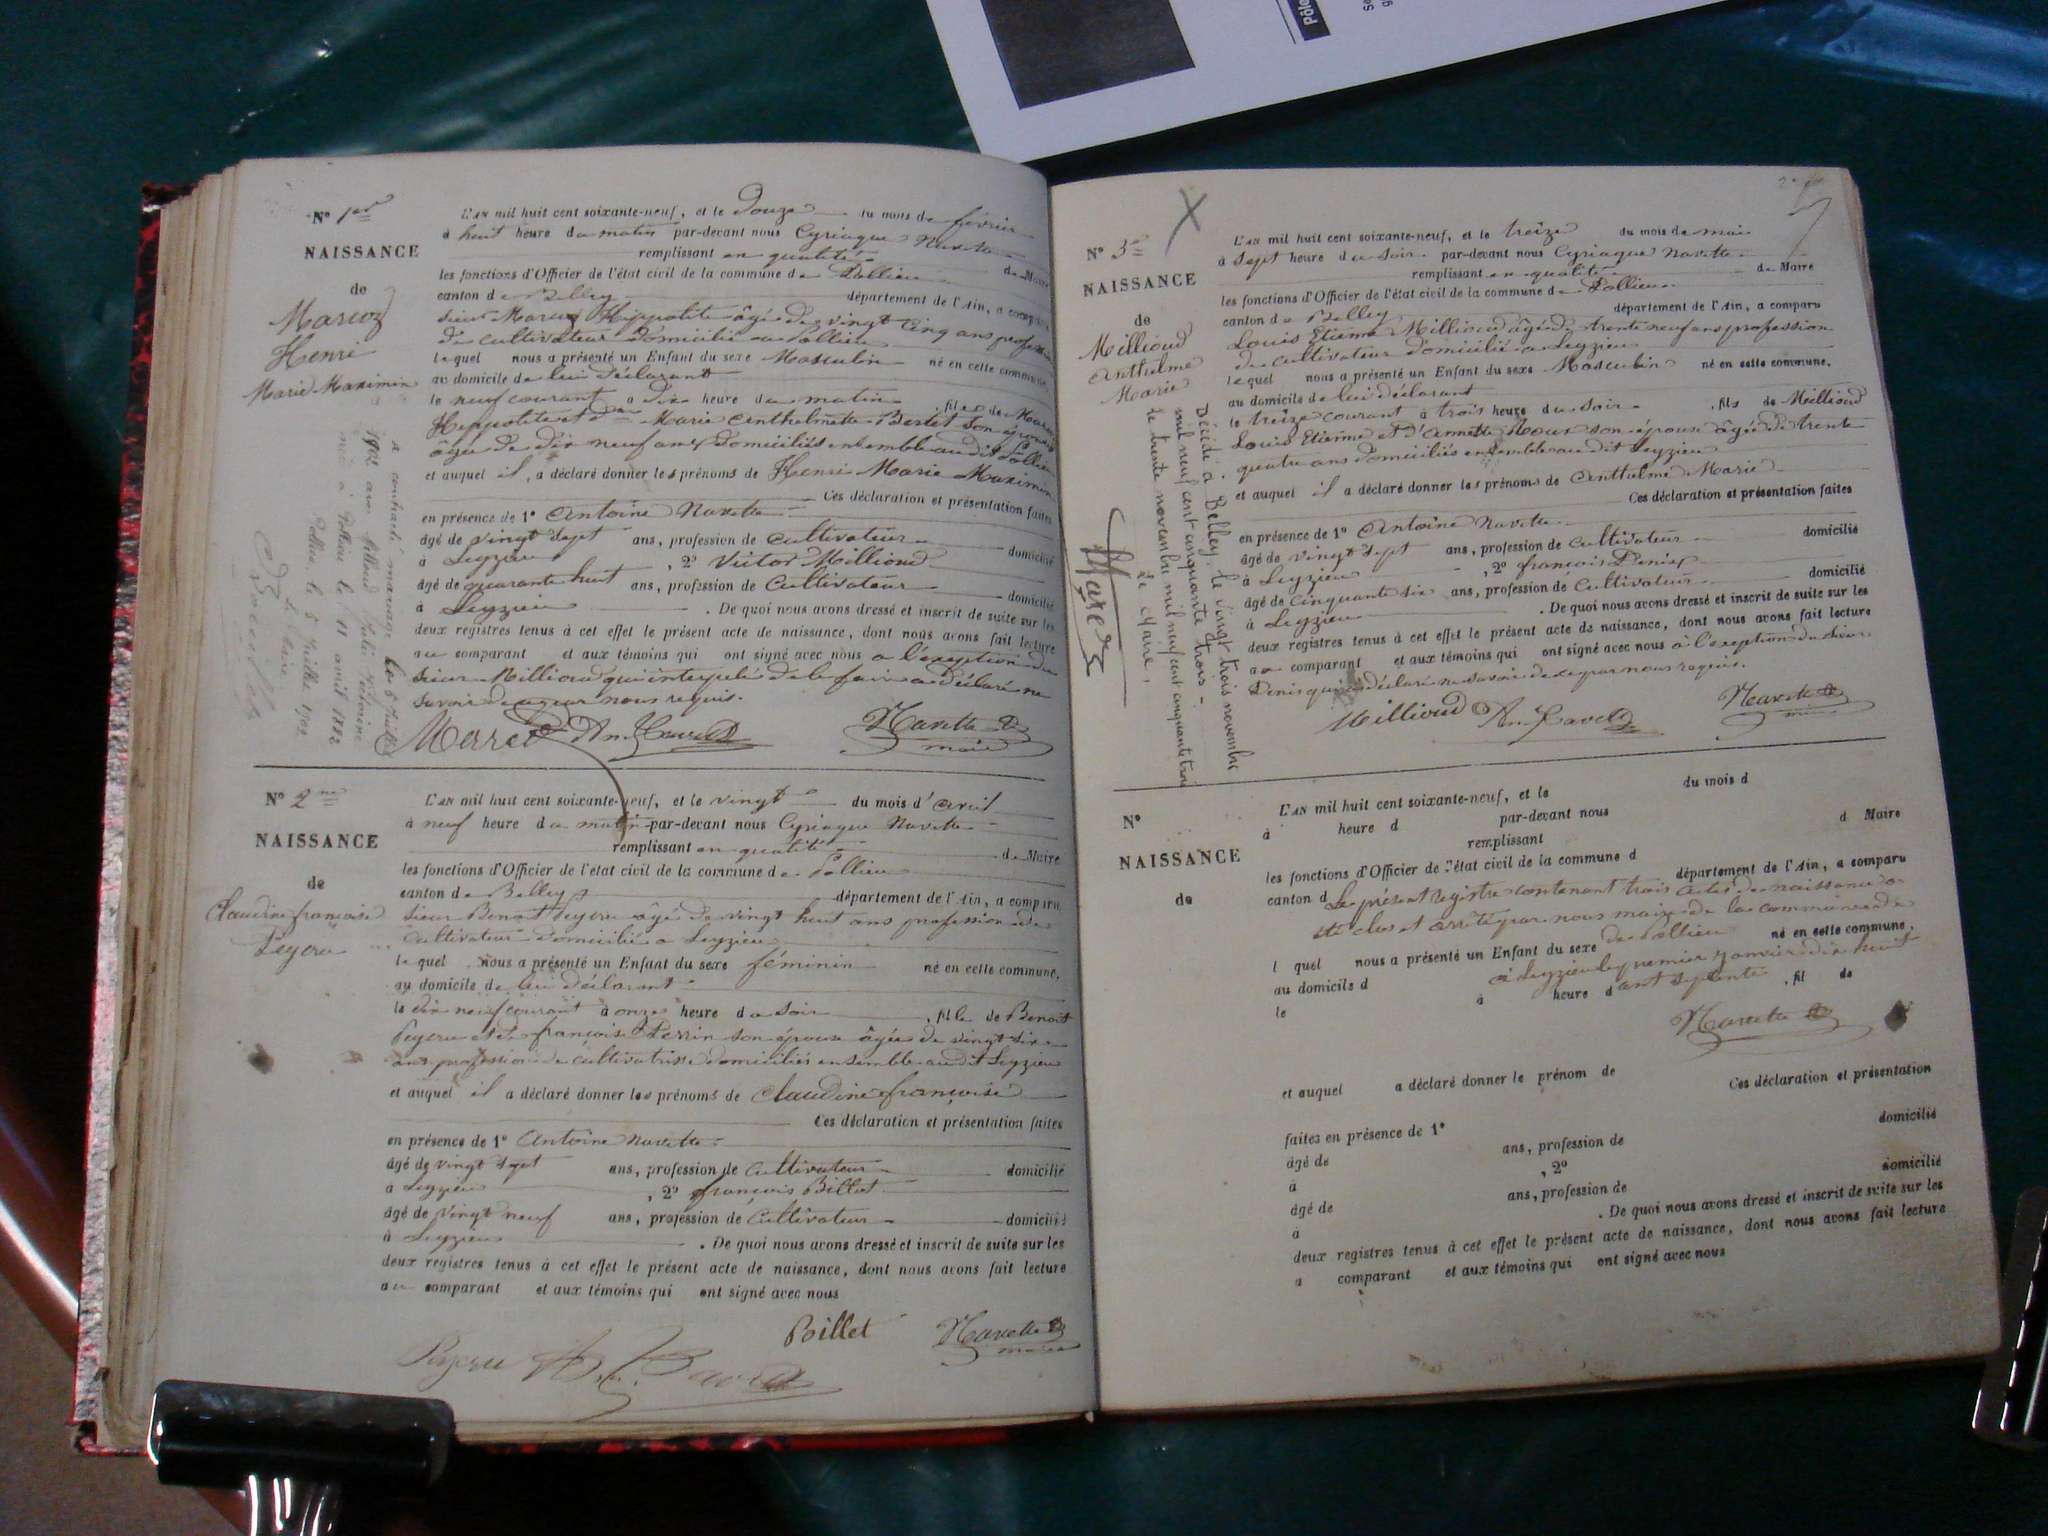 Pôle
N° 1er
NAISSANCE
de
Marcoz
Henri
Marie Maximin
L'AN mil huit cent soixante-neuf, et le Douze du mois de février
à huit heure du matin par-devant nous Cyriaque Navette
remplissant en qualité de Maire
les fonctions d'Officier de l'état civil de la commune de Pollieu
canton de Belley département de l'Ain, a comparu
sieur Marcoz Hippolite âgé de vingt cinq ans profession
de cultivateur domicilié à Pollieu
lequel nous a présenté un Enfant du sexe Masculin né en cette commune,
au domicile de lui déclarant
le neuf courant à dix heure du matin, fils de Marcoz
Hippolite et de Marie Anthelmette Bertet son épouse
âgée de dix neuf ans domiciliés ensemble audit Pollieu
et auquel il a déclaré donner les prénoms de Henri Marie Maximin
Ces déclaration et présentation faites
en présence de 1° Antoine Navette
âgé de vingt sept ans, profession de cultivateur domicilié
à Leyzieu, 2° Victor Millioud
âgé de quarante huit ans, profession de Cultivateur domicilié
à Leyzieu. De quoi nous avons dressé et inscrit de suite sur les
deux registres tenus à cet effet le présent acte de naissance, dont nous avons fait lecture
au comparant et aux témoins qui ont signé avec nous à l'exception du
sieur Millioud qui interpelé de le faire a déclaré ne
savoir de ce par nous requis.
Navette
maire
a contracté mariage le 5 Juillet
1902 avec
née à Pollieu le 11 août 1882
Pollieu le 5 Juillet 1902
Le Maire
N° 2me
NAISSANCE
de
Claudine françoise
Peyeru
L'AN mil huit cent soixante-neuf, et le vingt du mois d'avril
à neuf heure du matin par-devant nous Cyriaque Navette
remplissant en qualité de Maire
les fonctions d'Officier de l'état civil de la commune de Pollieu
canton de Belley département de l'Ain, a comparu
sieur Benoit Peyeru âgé de vingt huit ans profession de
cultivateur domicilié à Leyzieu
lequel nous a présenté un Enfant du sexe féminin né en cette commune,
au domicile de lui déclarant
le dix neuf courant à onze heure du soir, fille de Benoit
Peyeru et de françoise Perrin son épouse âgée de vingt six
ans profession de cultivatrice domiciliés ensemble audit Leyzieu
et auquel il a déclaré donner les prénoms de Claudine françoise
Ces déclaration et présentation faites
en présence de 1° Antoine Navette
âgé de vingt sept ans, profession de cultivateur domicilié
à Leyzieu, 2° françois Billet
âgé de vingt neuf ans, profession de Cultivateur domicilié
à Leyzieu. De quoi nous avons dressé et inscrit de suite sur les
deux registres tenus à cet effet le présent acte de naissance, dont nous avons fait lecture
au comparant et aux témoins qui ont signé avec nous
Billet
Navette
maire
Peyeru
N° 3e
NAISSANCE
de
Millioud
Anthelme
Marie
L'AN mil huit cent soixante-neuf, et le treize du mois de mai
à sept heure du soir par-devant nous Cyriaque Navette
remplissant en qualité de Maire
les fonctions d'Officier de l'état civil de la commune de Pollieu
canton de Belley département de l'Ain, a comparu
Louis Etienne Millioud âgé de trente neuf ans profession
de cultivateur domicilié à Leyzieu
lequel nous a présenté un Enfant du sexe Masculin né en cette commune,
au domicile de lui déclarant
le treize courant à trois heure du soir, fils de Millioud
Louis Etienne et d'Annette Roux son épouse âgée de trente
quatre ans domiciliés ensemble audit Leyzieu
et auquel il a déclaré donner les prénoms de Anthelme Marie
Ces déclaration et présentation faites
en présence de 1° Antoine Navette
âgé de vingt sept ans, profession de Cultivateur domicilié
à Leyzieu, 2° françois Denis
âgé de cinquante six ans, profession de Cultivateur domicilié
à Leyzieu. De quoi nous avons dressé et inscrit de suite sur les
deux registres tenus à cet effet le présent acte de naissance, dont nous avons fait lecture
au comparant et aux témoins qui ont signé avec nous à l'exeption du sieur
Denis qui a déclaré ne savoir de ce par nous requis.
Millioud
Navette
maire
Décédé à Belley, le vingt trois novembre
mil neuf cent cinquante trois
Le trente novembre mil neuf cent cinquante trois
Le Maire,
N°
NAISSANCE
de
L'AN mil huit cent soixante-neuf, et le du mois d
à heure d par-devant nous
remplissant d Maire
les fonctions d'Officier de l'état civil de la commune d
canton d département de l'Ain, a comparu
Le présent registre contenant trois actes de naissance a
été clos et arrêté par nous maire de la commune de
de Pollieu
l quel nous a présenté un Enfant du sexe né en cette commune,
à Leyzieu le premier janvier dix huit
cent septante
au domicile d
le à heure d, fil de
Navette
et auquel a déclaré donner le prénom de
Ces déclaration et présentation
faites en présence de 1° domicilié
âgé de ans, profession de
à, 2° domicilié
âgé de ans, profession de
à. De quoi nous avons dressé et inscrit de suite sur les
deux registres tenus à cet effet le présent acte de naissance, dont nous avons fait lecture
a comparant et aux témoins qui ont signé avec nous